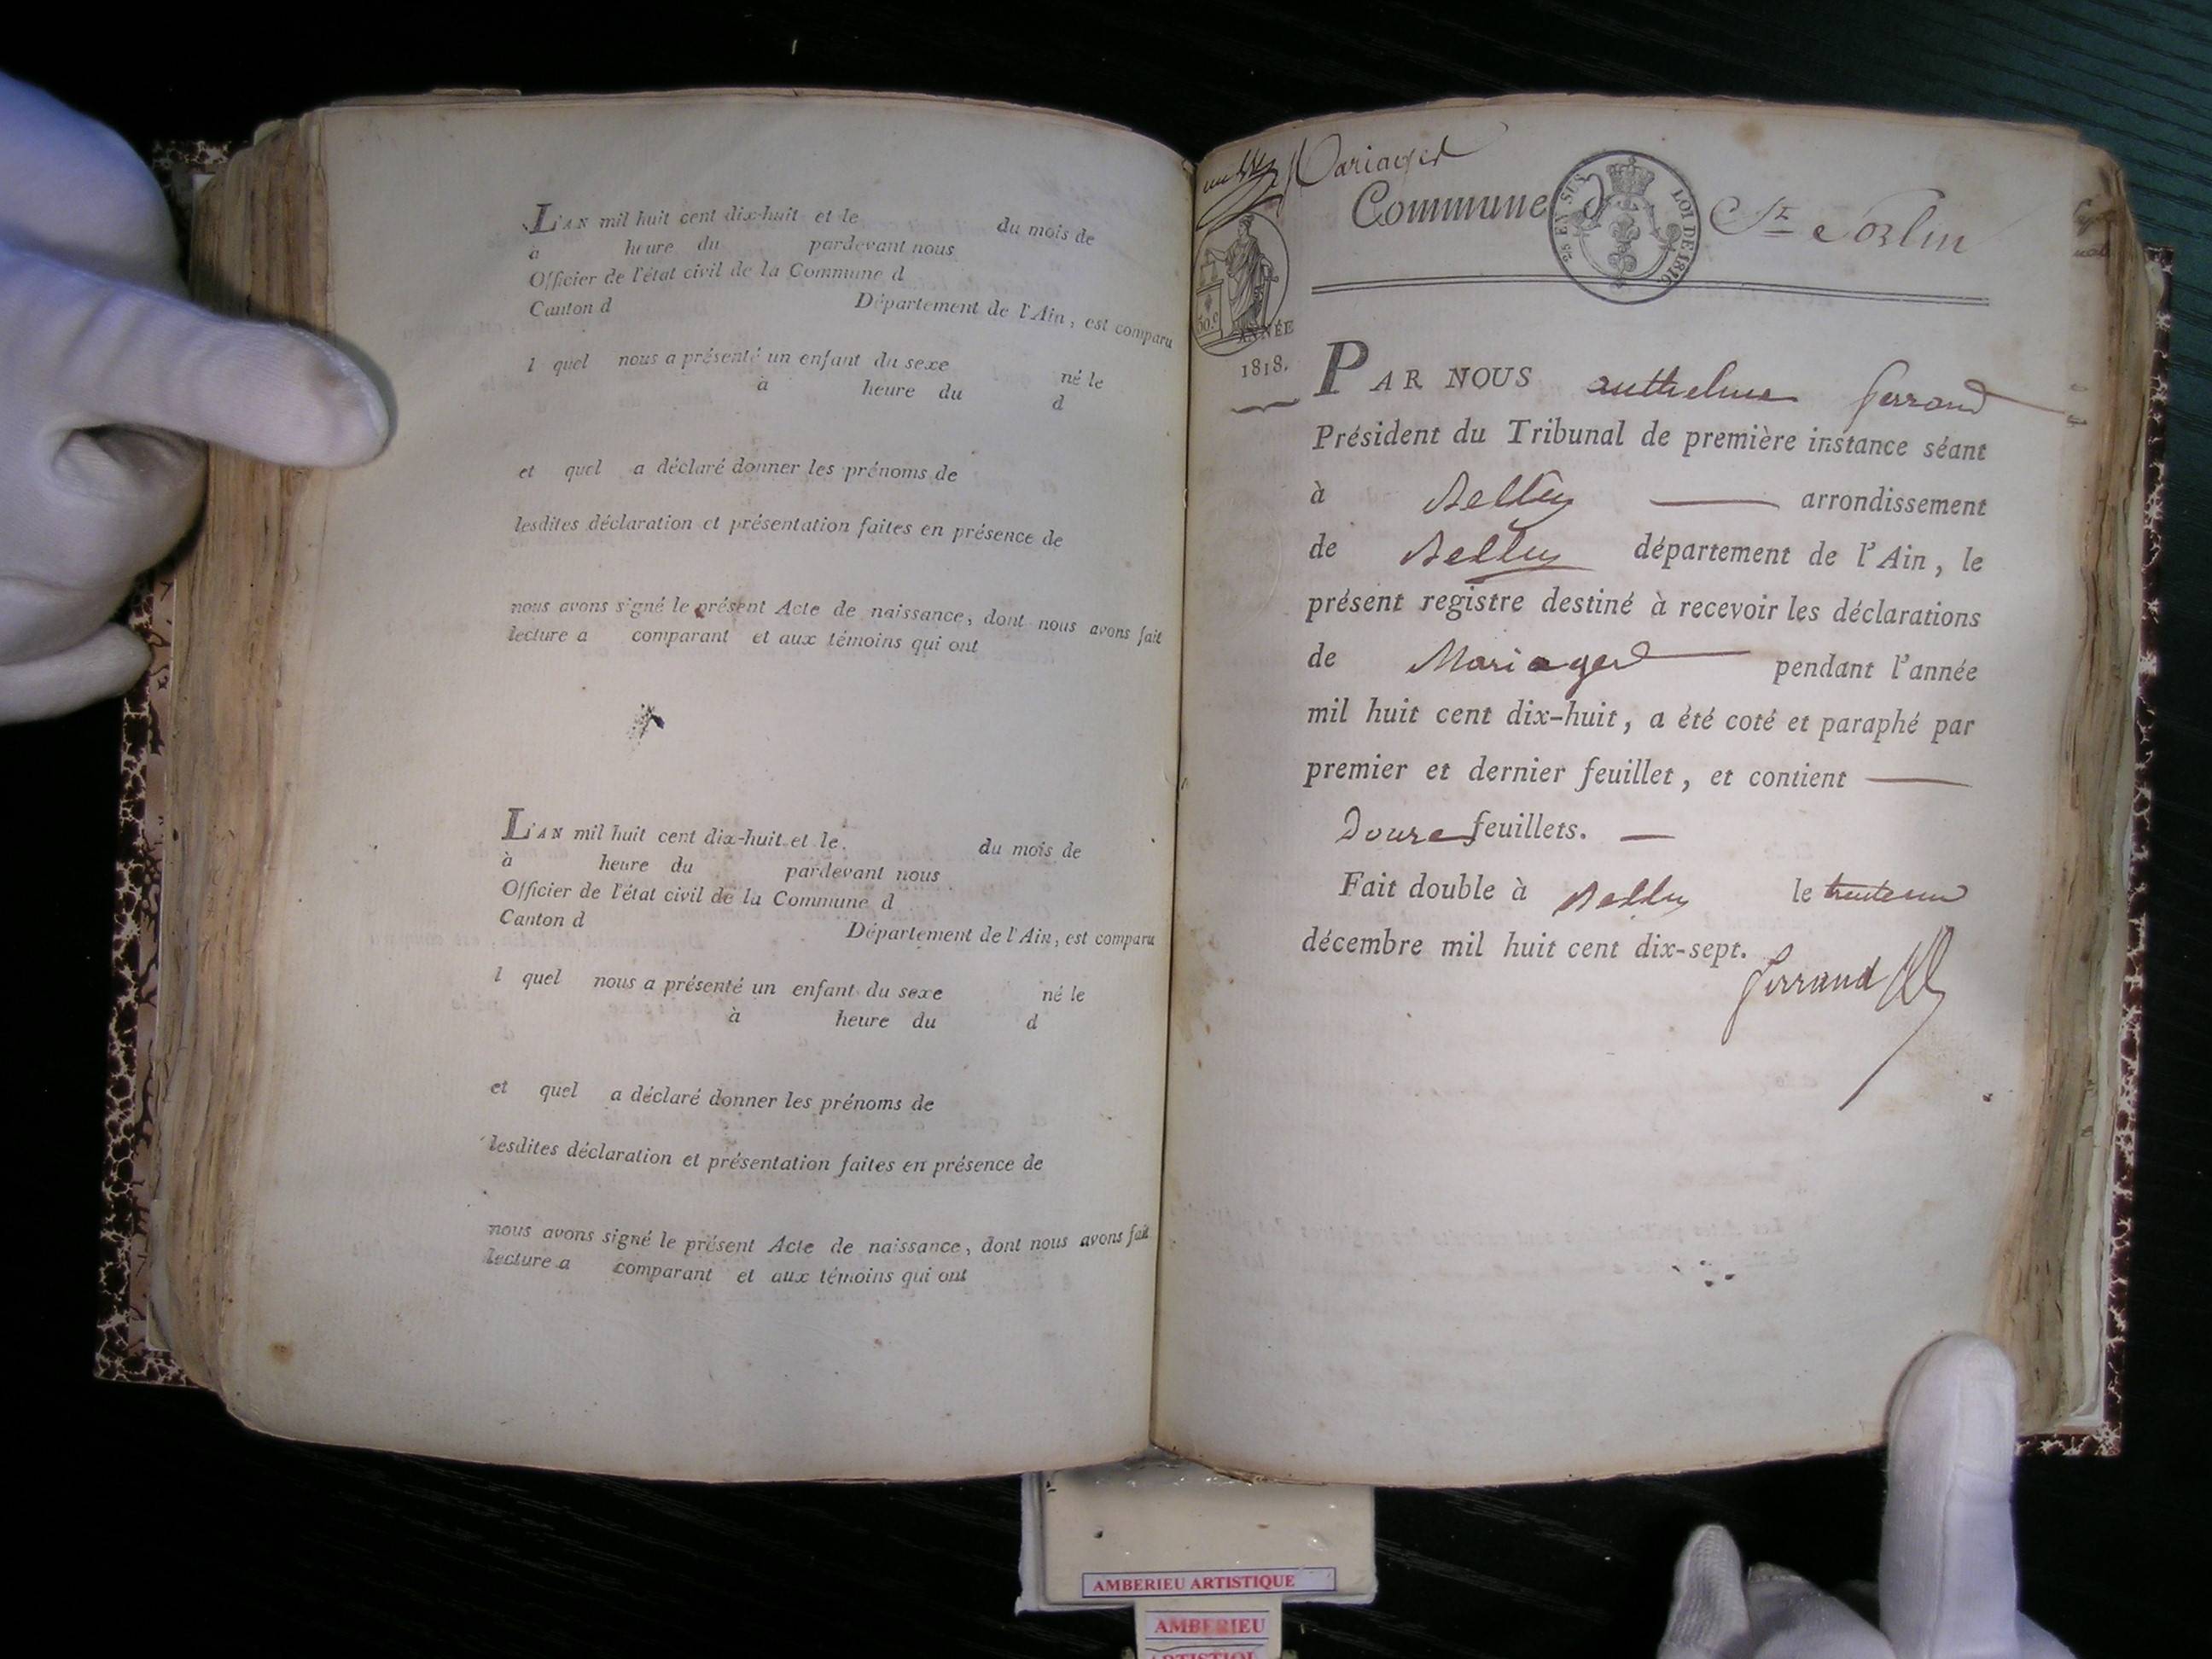 L'AN mil huit cent dix-huit et le du mois de
à heure du pardevant nous
Officier de l'état civil de la Commune d
Canton d Département de l'Ain, est comparu
l quel nous a présenté un enfant du sexe né le
à heure du d
et quel a déclaré donner les prénoms de
lesdites déclaration et présentation faites en présence de
nous avons signé le présent Acte de naissance, dont nous avons fait
lecture a comparant et aux témoins qui ont
L'AN mil huit cent dix-huit et le du mois de
à heure du pardevant nous
Officier de l'état civil de la Commune d
Canton d Département de l'Ain, est comparu
l quel nous a présenté un enfant du sexe né le
à heure du d
et quel a déclaré donner les prénoms de
lesdites déclaration et présentation faites en présence de
nous avons signé le présent Acte de naissance, dont nous avons fait
lecture a comparant et aux témoins qui ont
Mariages
Commune d St Sorlin
25 EN SUS LOI DE 1816
50.c
ANNÉE
1818.
PAR NOUS anthelme ferrand
Président du Tribunal de première instance séant
à Belley arrondissement
de Belley département de l'Ain, le
présent registre destiné à recevoir les déclarations
de Mariages pendant l'année
mil huit cent dix-huit, a été coté et paraphé par
premier et dernier feuillet, et contient
Douze feuillets.
Fait double à Belley le trente un
décembre mil huit cent dix-sept.
ferrand
AMBERIEU ARTISTIQUE
AMBERIEU
ARTISTIQUE